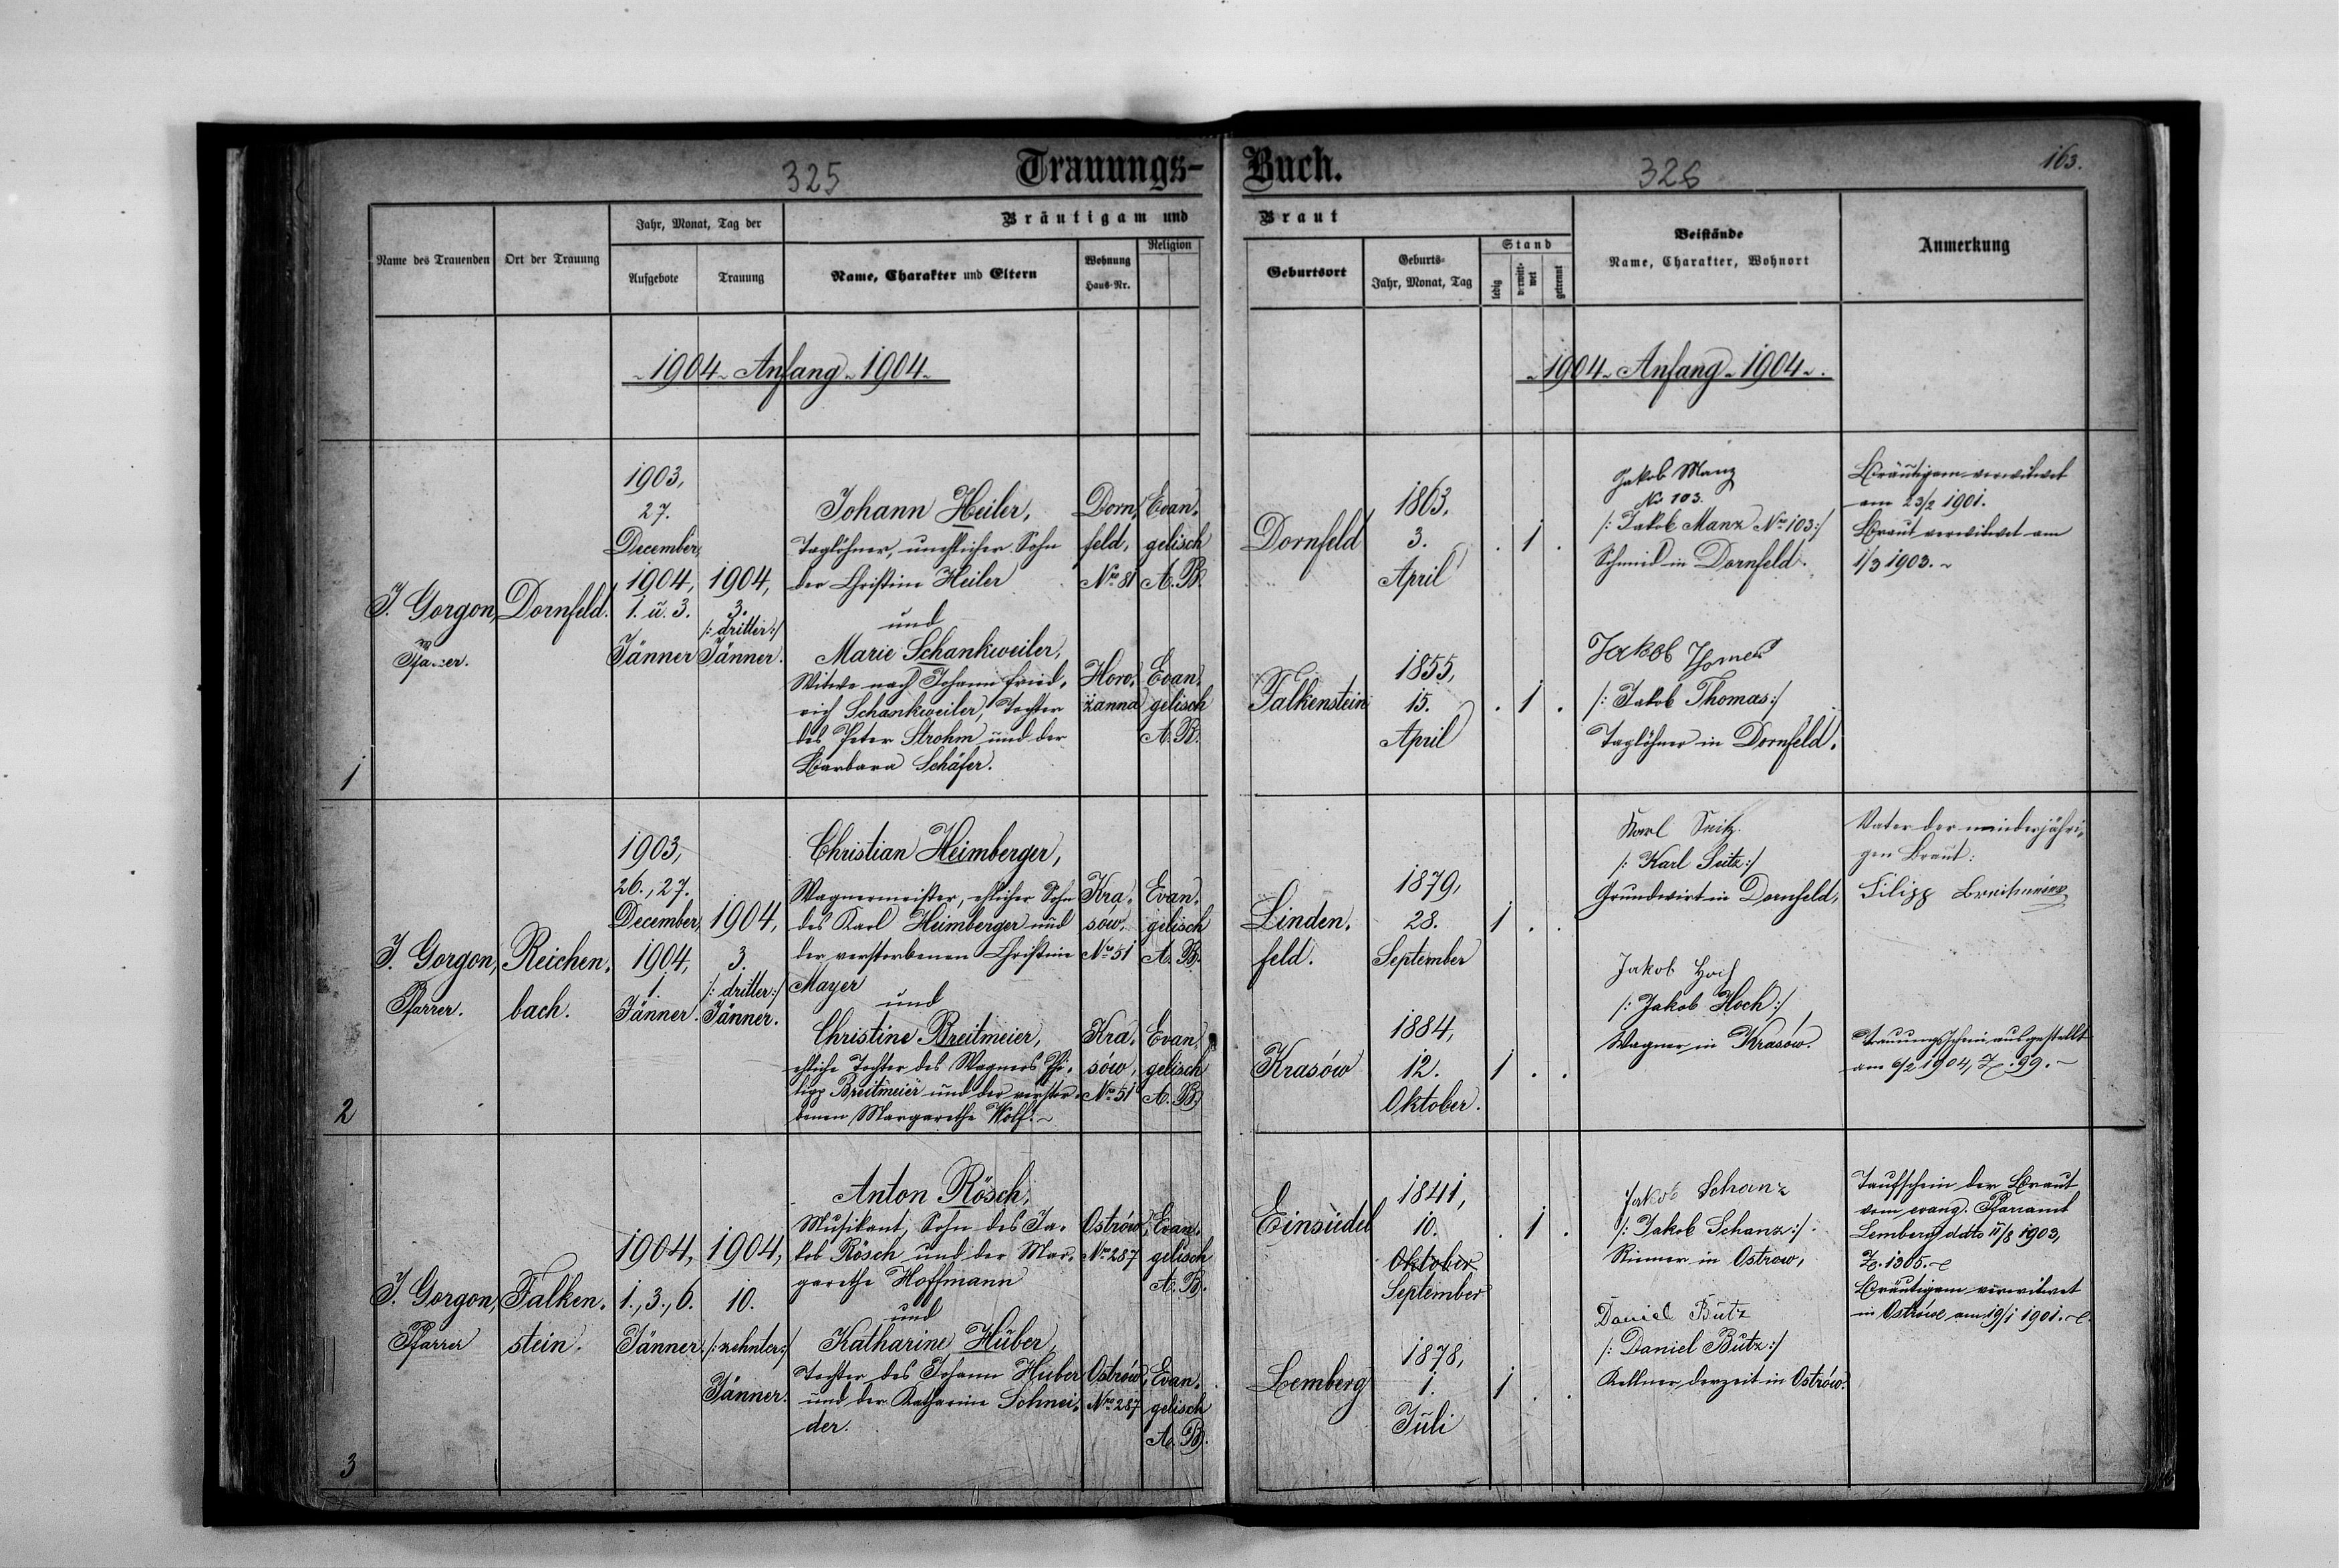 325
Trauungs-
Buch.
326
163.
Name des Trauenden
Ort der Trauung
Jahr, Monat, Tag der
Aufgebote
Trauung
Bräutigam und
Name, Charakter und Eltern
Wohnung
Haus-Nr.
Religion
Braut
Geburtsort
Geburts-
Jahr, Monat, Tag
Stand
ledig
verwitt-
wet
getrennt
Beistände
Name, Charakter, Wohnort
Anmerkung
1904 Anfang 1904
1904 Anfang 1904.
1
J. Gorgon,
Pfarrer.
Dornfeld.
1903,
27.
December,
1904,
1. u. 3.
Jänner
1904,
3.
/: dritter:/
Jänner.
Johann Heiler,
Taglöhner, unehlicher Sohn
der Christine Heiler
und
Marie Schankweiler,
Witwe nach Johann Fried-
rich Schankweiler, Tochter
des Peter Strohm und der
Barbara Schäfer.
Dorn-
feld,
No 81
Evan-
gelisch
A. B.
Horo-
żanna
Evan-
gelisch
A. B.
Dornfeld
1863,
3.
April
. 1 .
Falkenstein
1855,
15.
April
. 1 .
Jakob Manz
No 103.
/: Jakob Manz No 103:/
Schmid in Dornfeld.
Jakob Thomas
/: Jakob Thomas:/
Taglöhner in Dornfeld.
Bräutigam verwitwet
am 23/2 1901.
Braut verwitwet am
1/3 1903.
2
J. Gorgon,
Pfarrer.
Reichen-
bach.
1903,
26., 27.
December,
1904,
1.
Jänner.
1904,
3.
/: dritter:/
Jänner.
Christian Heimberger,
Wagnermeister, ehlicher Sohn
des Karl Heimberger und
der verstorbenen Christine
Mayer
und
Christine Breitmeier,
ehliche Tochter des Wagners Phi-
lipp Breitmeier und der verstor-
benen Margarethe Wolf.
Kra-
sów,
No 51
Evan-
gelisch
A. B.
Kra-
sów,
No 51
Evan-
gelisch
A. B.
Linden-
feld.
1879,
28.
September
1 . .
Krasów
1884,
12.
Oktober.
1 . .
Karl Seitz.
/: Karl Seitz:/
Grundwirt in Dornfeld,
Jakob Hoch
/: Jakob Hoch:/,
Wagner in Krasów.
Vater der minderjähri-
gen Braut:
Filipp Breitmeier
Trauungsschein ausgestellt
am 6/2 1904, Z. 99.
3
J. Gorgon,
Pfarrer
Falken-
stein.
1904,
1., 3., 6.
Jänner.
1904,
10.
/: zehnter:/
Jänner.
Anton Rösch,
Musikant, Sohn des Ja-
kob Rösch und der Mar-
garethe Hoffmann
und
Katharine Huber,
Tochter des Johann Huber
und der Katharine Schnei-
der.
Ostrów,
No 287
Evan-
gelisch
A. B.
Ostrów,
No 287
Evan-
gelisch
A. B.
Einsiedel
1841,
10.
Oktober
September
. 1 .
Lemberg
1878,
1.
Juli
1 . .
Jakob Schanz
/: Jakob Schanz:/
Riemer in Ostrow,
Daniel Butz
/: Daniel Butz:/
Kellner, derzeit in Ostrów.
Taufschein der Braut
vom evang. Pfarramt
Lemberg ddto 11/8 1903,
Z. 1305.
Bräutigam verwitwet
in Ostrów am 19/1 1901.